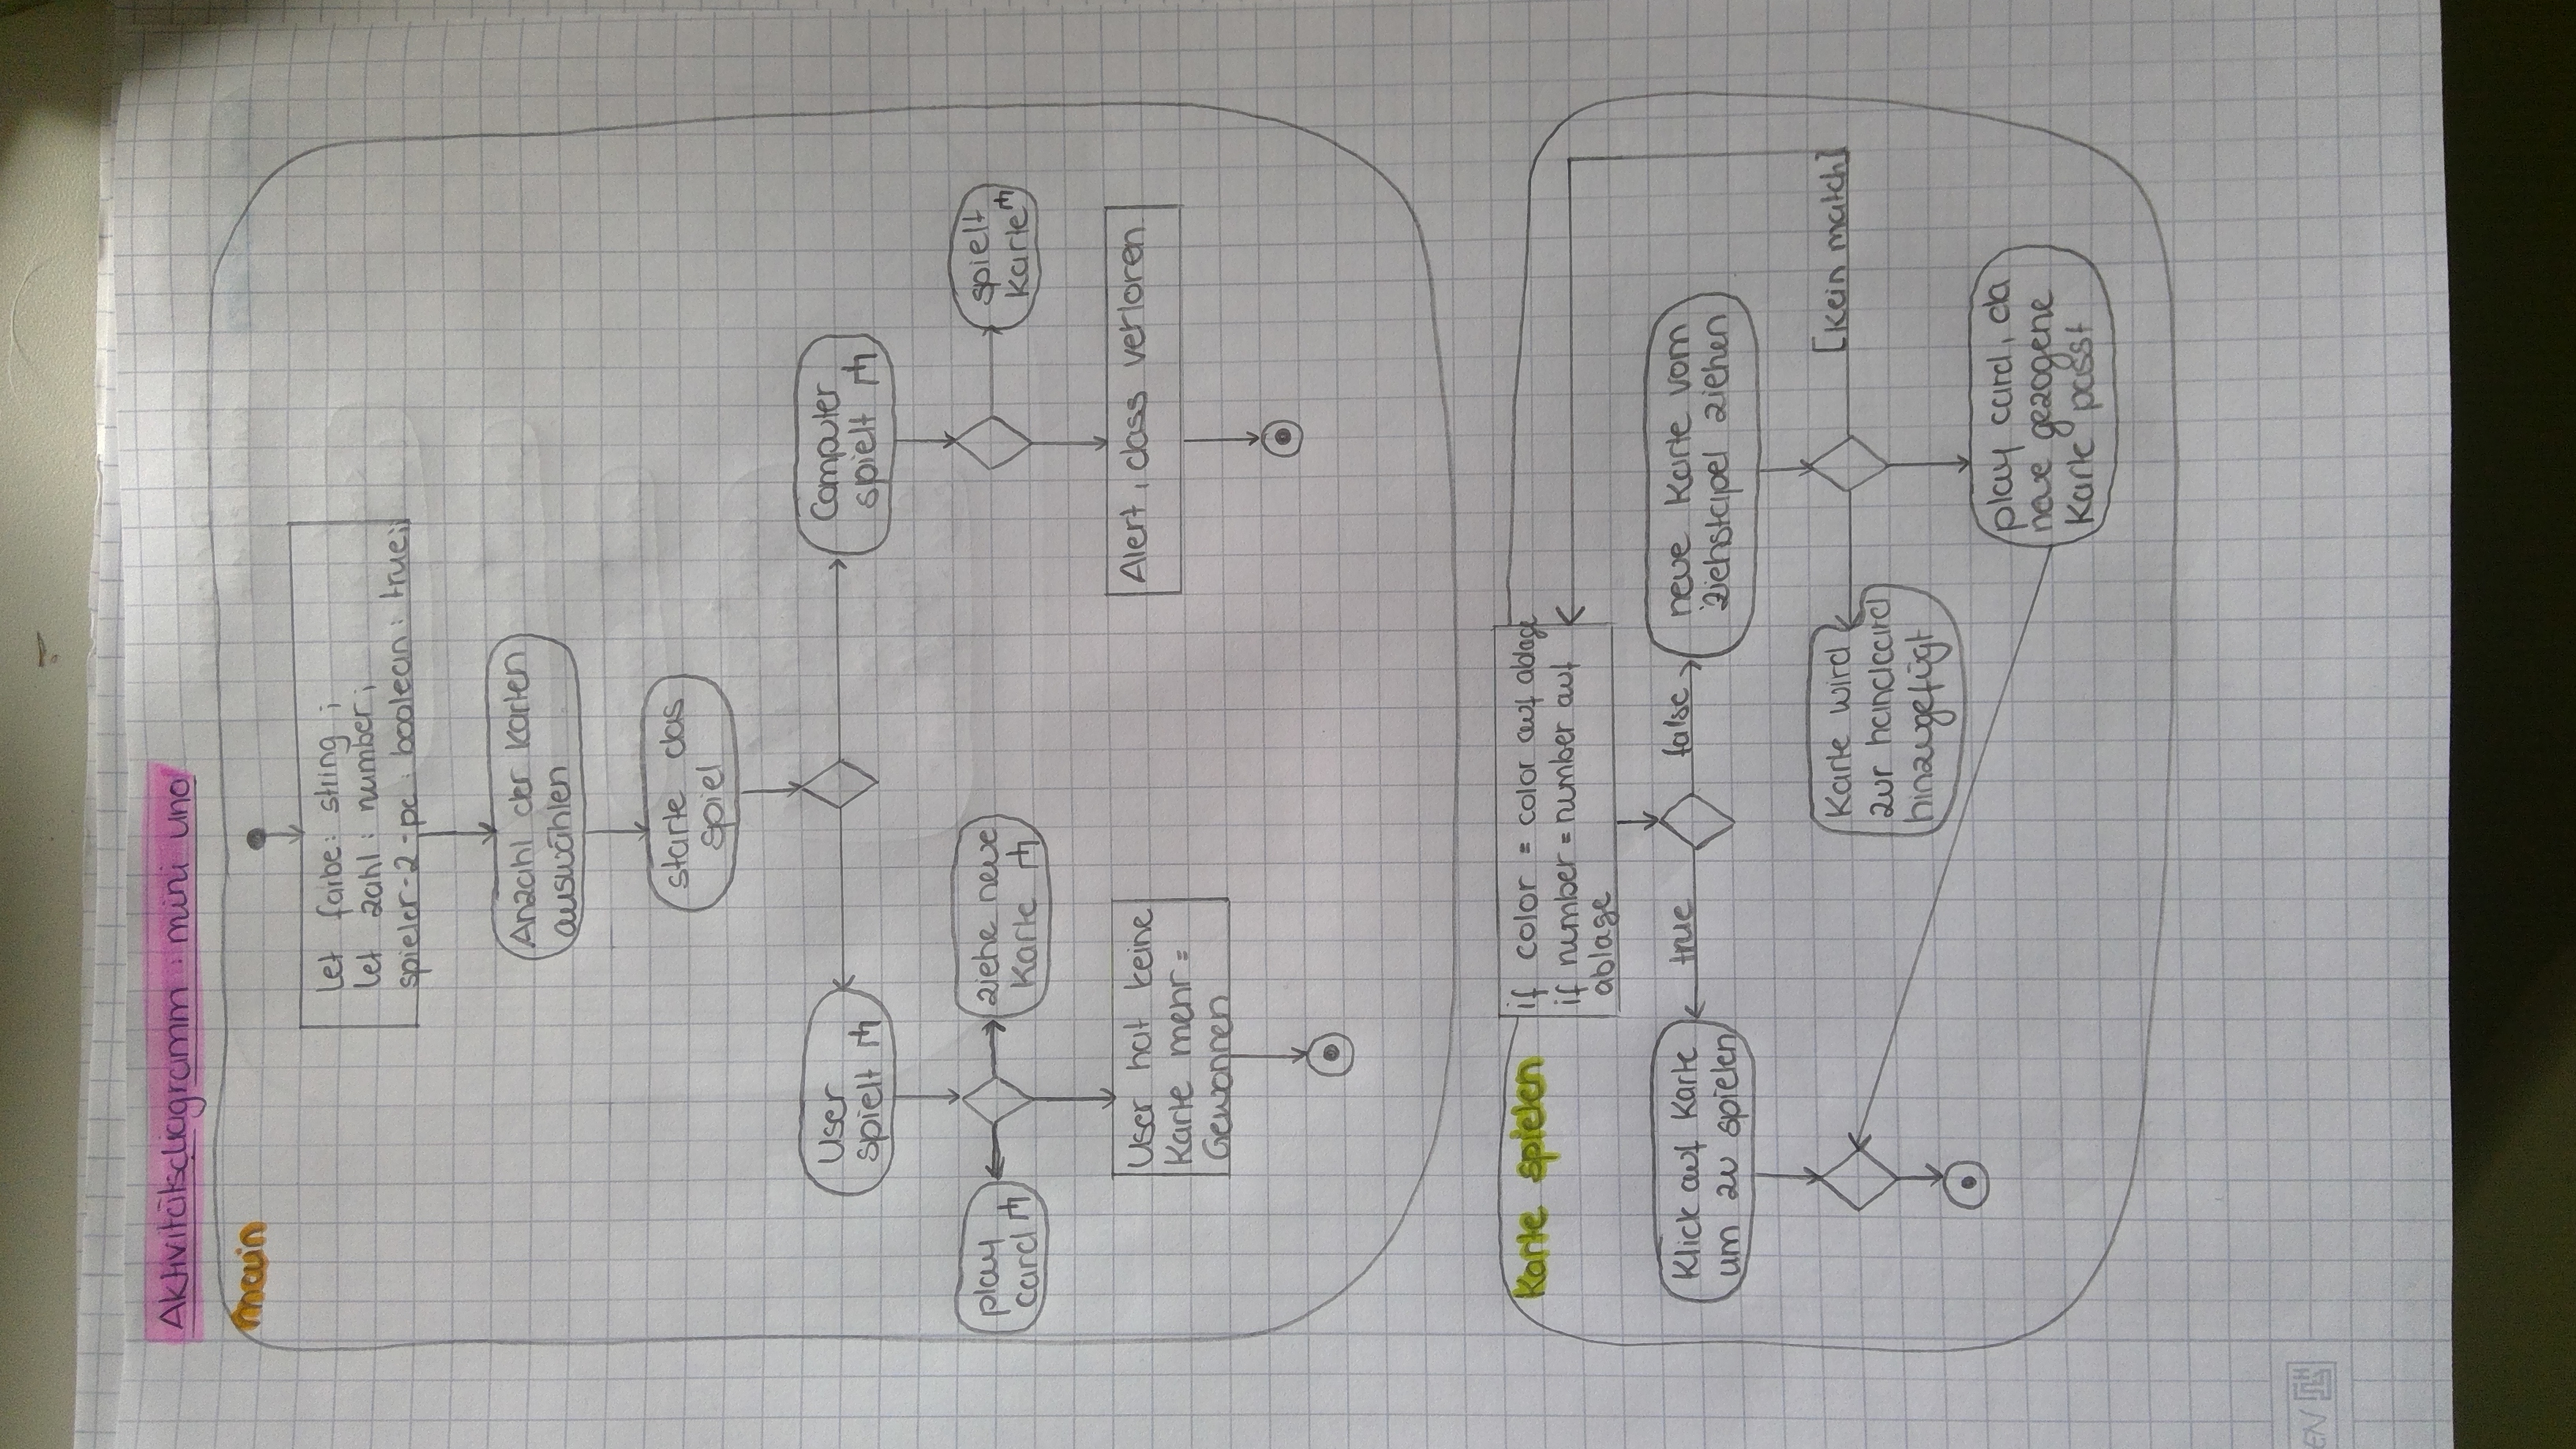 Aktivitätsdiagramm: mini uno
main
let farbe: string;
let zahl: number;
spieler-2-pc: boolean: true;
Anzahl der Karten
auswählen
starte das
spiel
User
spielt
Computer
spielt
play
card
ziehe neue
Karte
spielt
Karte
User hat keine
Karte mehr =
Gewonnen
Alert, dass verloren
Karte spielen
if color = color auf ablage
if number = number auf
ablage
Klick auf Karte
um zu spielen
true
false
neue Karte vom
ziehstapel ziehen
Karte wird
zur handcard
hinzugefügt
[Kein match]
play card, da
neue gezogene
Karte passt
EN